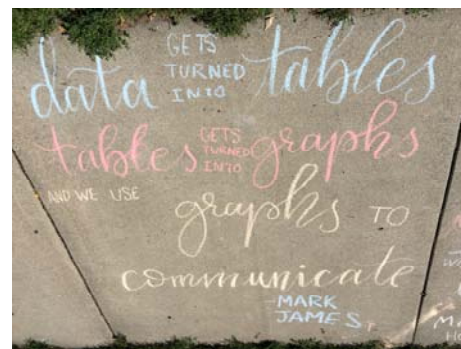 data GETS TURNED INTO tables
tables GETS TURNED INTO graphs
AND WE USE graphs TO
communicate
-MARK
JAMES